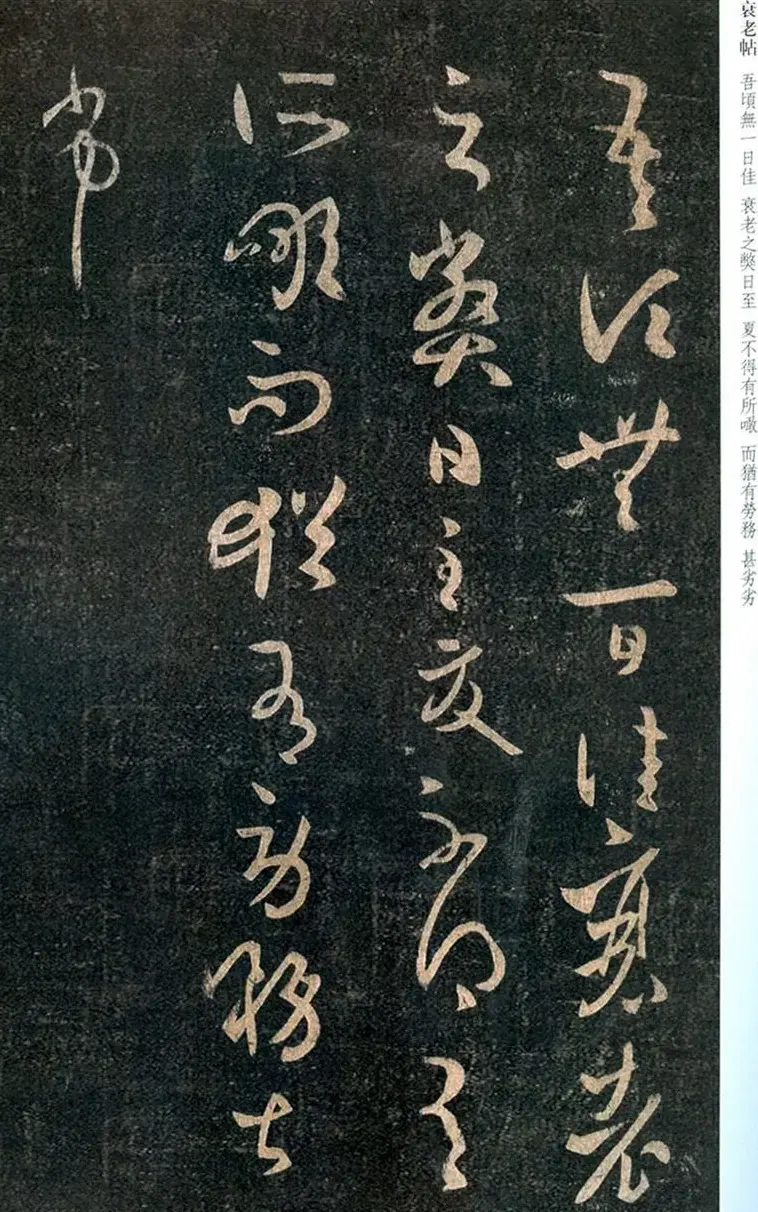 衰老帖 吾頃無一日佳 衰老之獘日至 夏不得有所噉 而猶有勞務 甚劣劣
吾頃無一日佳衰老
之獘日至夏不得有
所噉而猶有勞務甚
劣劣